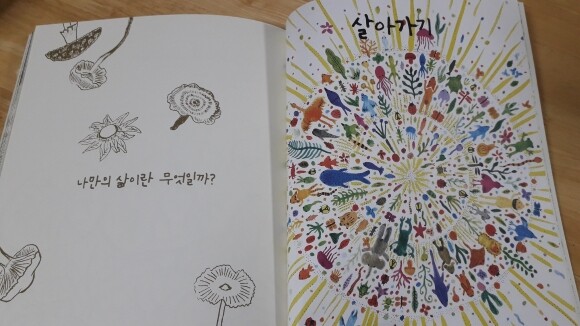 나만의 삶이란 무엇일까?
살아가기